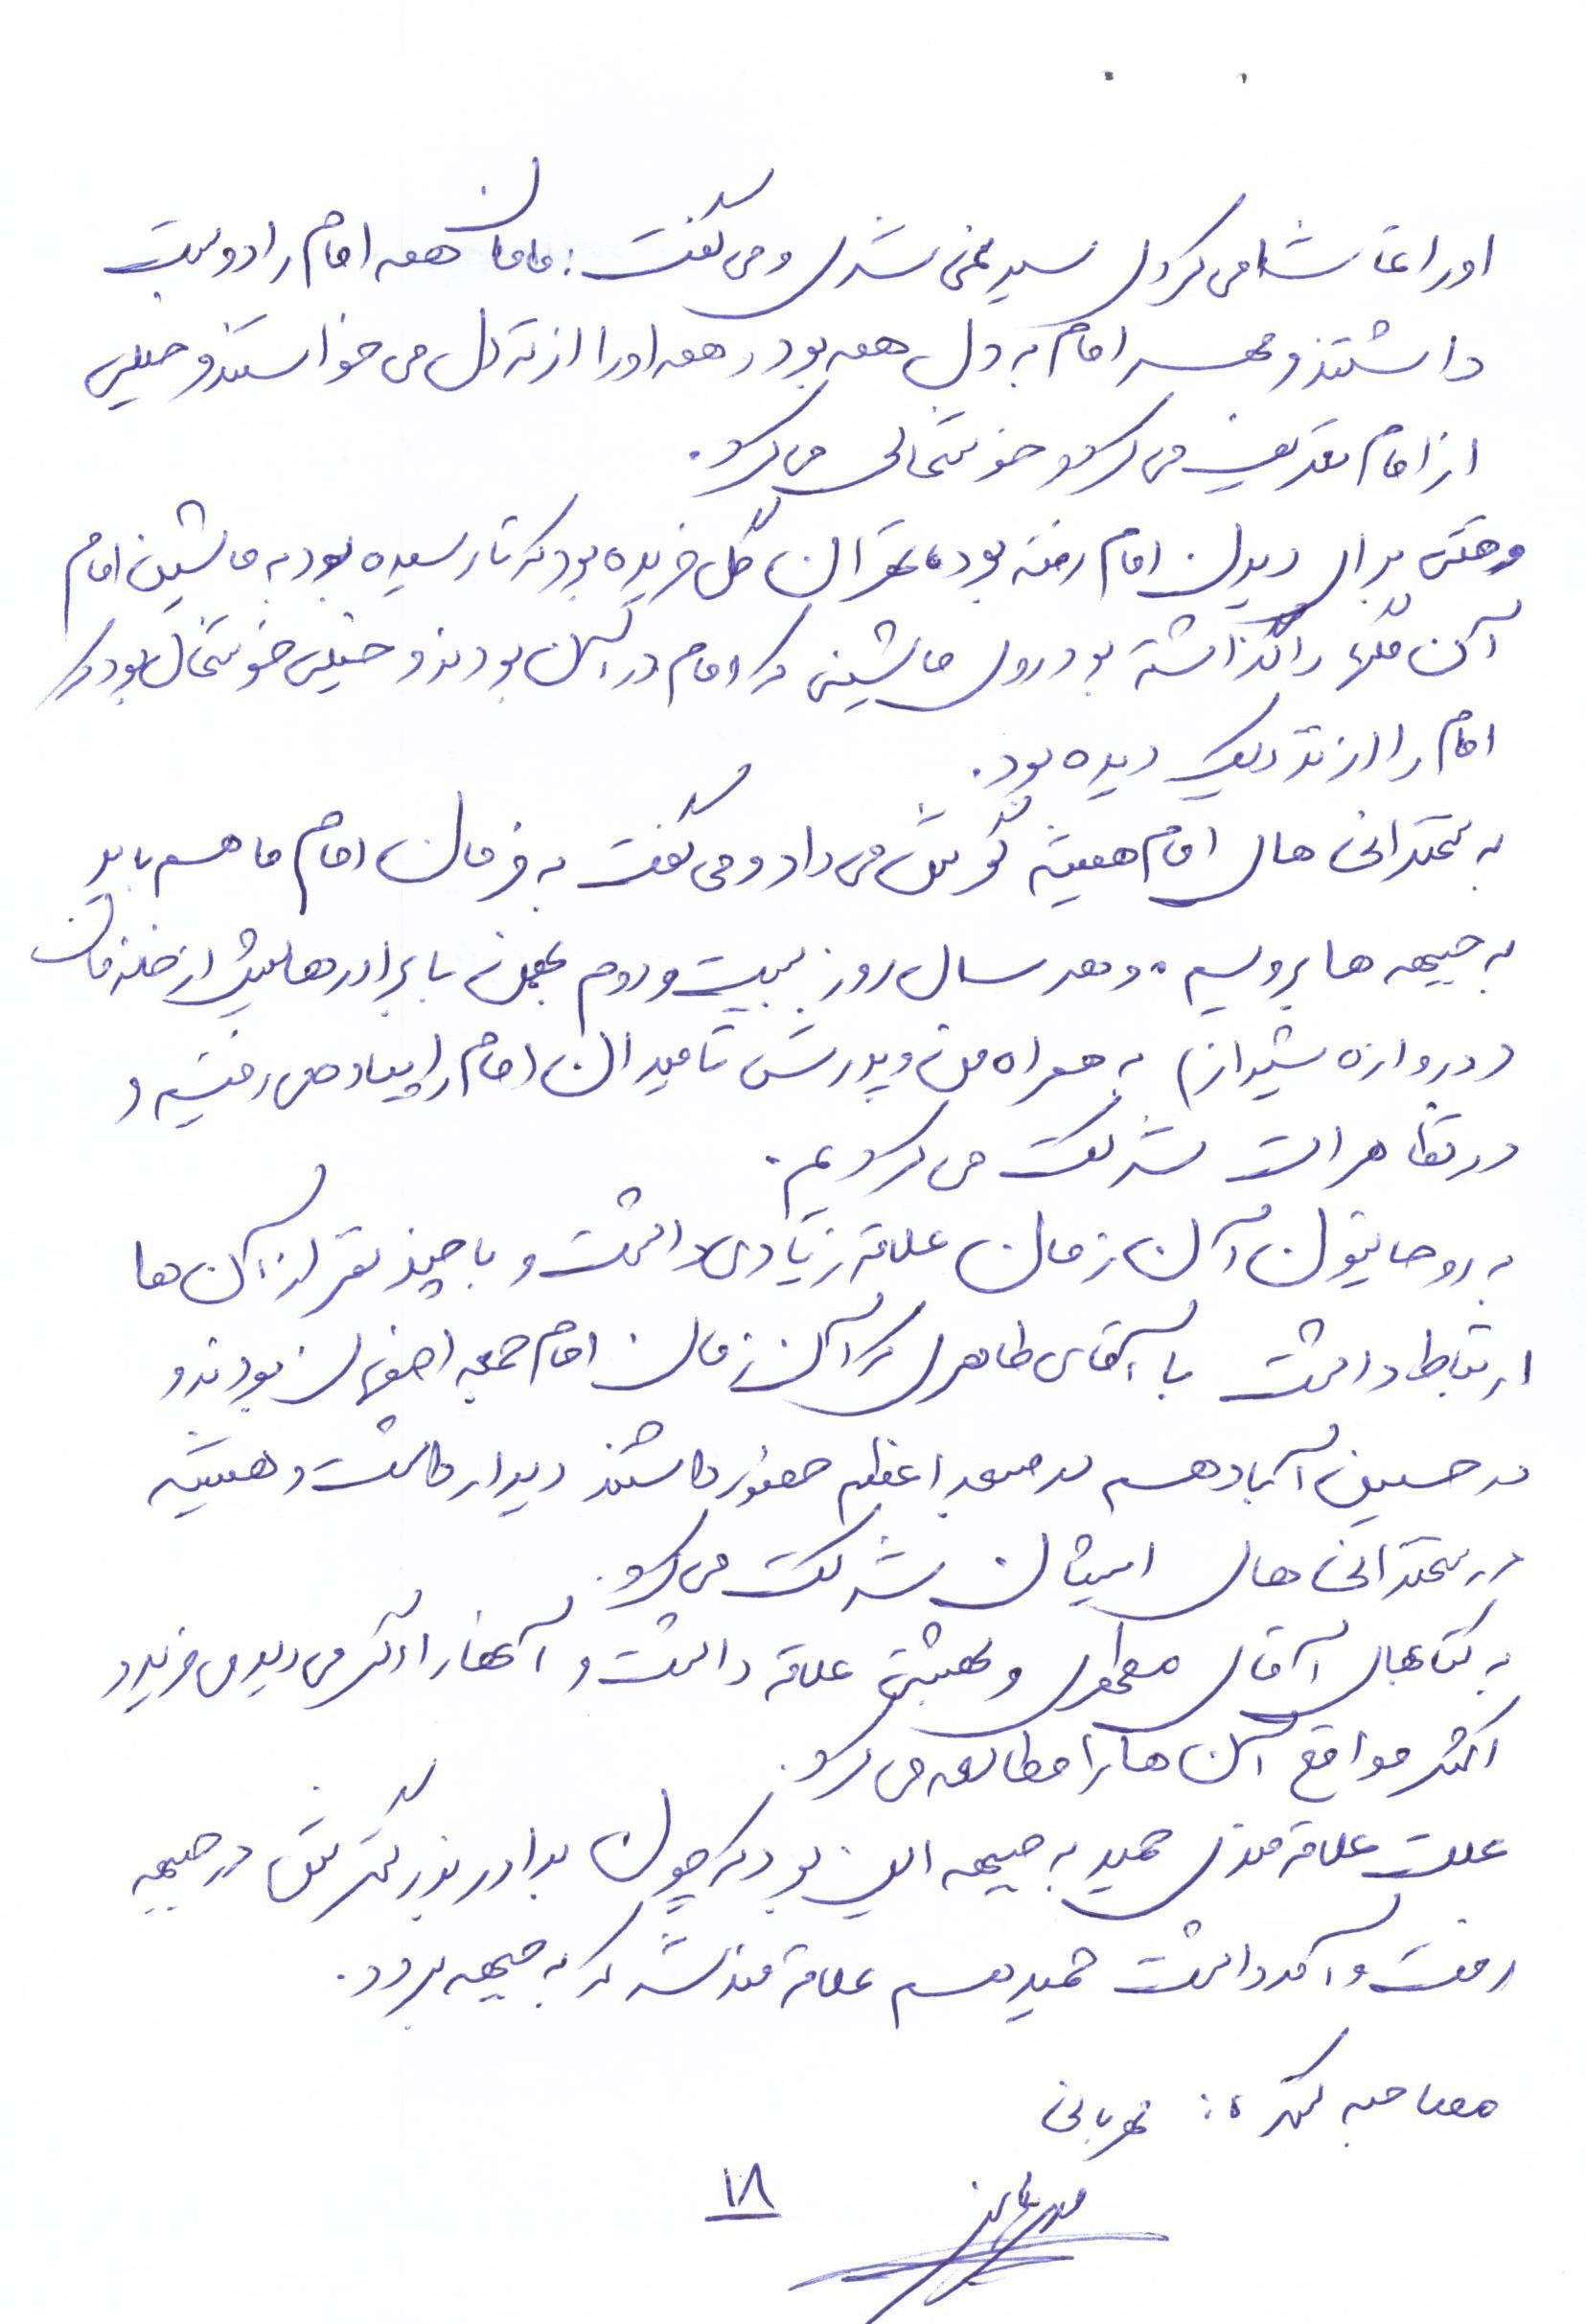 او را تماشا می کردی سیر نمی شدی و می گفت: مامان همه امام را دوست
داشتند و مهر امام به دل همه بود و همه او را از ته دل می خواستند و خیلی
از امام تعریف می کرد و خوشحالی می کرد.
وقتی برای دیدن امام رفته بود، تهران گل خریده بود که تا رسیده بود به ماشین امام
آن گلها را گذاشته بود روی ماشینی که امام در آن بودند و خیلی خوشحال بود که
امام را از نزدیک دیده بود.
به سخنرانی های امام همیشه گوش می داد و می گفت به فرمان امام ما هم باید
به جبهه ها برویم. و هر سال روز بیست و دوم بهمن با برادرهایش از خانه مان
(دروازه شیراز) به همراه من و پدرش تا میدان امام راپیاده می رفتیم و
در تظاهرات شرکت می کردیم.
به روحانیون آن زمان علاقه زیادی داشت و با چند نفر از آن ها
ارتباط داشت با آقای طاهری که آن زمان امام جمعه اصفهان بودند و
در حسین آباد هم در مسجد اعظم حضور داشتند دیدار داشت و همیشه
در سخنرانی های ایشان شرکت می کرد.
به کتابهای آقای مطهری و بهشتی علاقه داشت و آنها را اگر می دید می خرید و
اکثر مواقع آن ها را مطالعه می کرد.
علت علاقه مندی حمید به جبهه این بود که چون برادر بزرگترش در جبهه
رفت و آمد داشت حمید هم علاقه مند شد که به جبهه برود.
مصاحبه کننده: مهربانی
۱۸